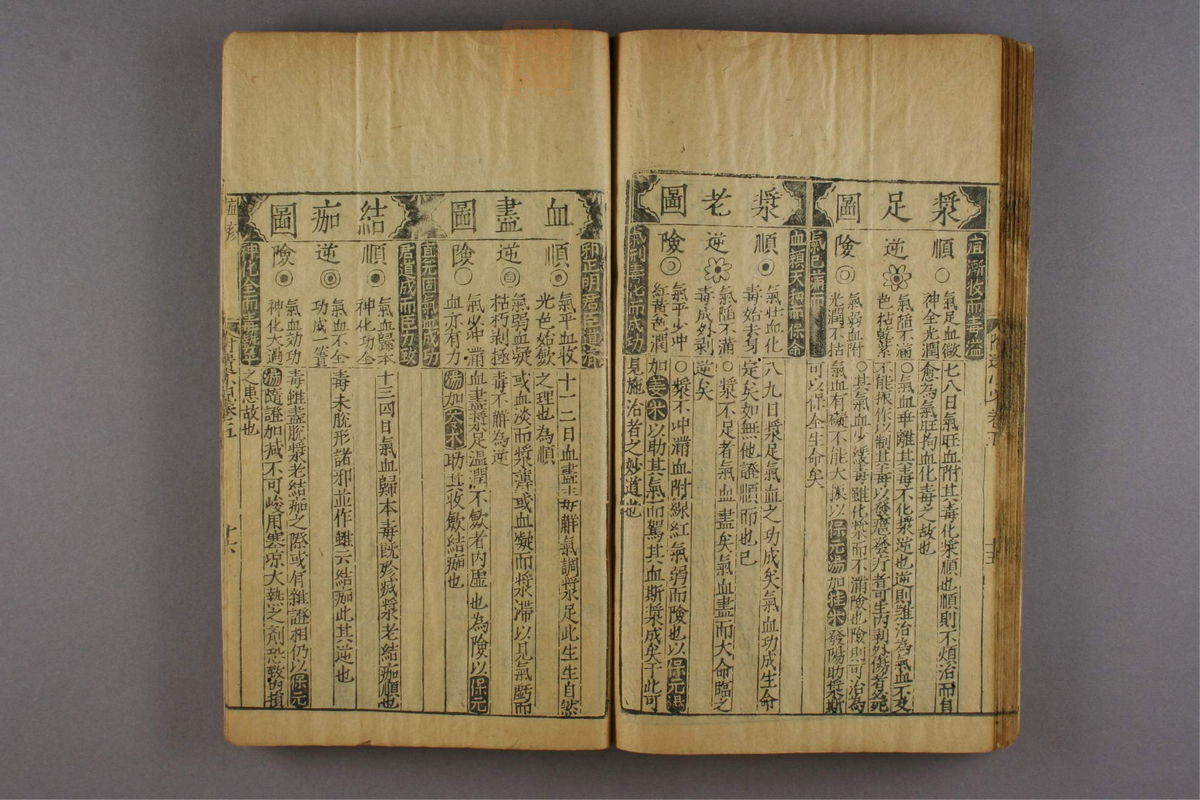 漿足圖
宜漸收而毒溢
順
氣足血斂
神全光潤
七八日氣旺血附其毒化漿順也順則不煩治而自
愈為氣旺拘血化毒之故也
逆
氣陷不滿
色枯繁紫
氣血乖離其毒不化漿逆也逆則難治為氣血不交
不能振作以制其毒以發瘡發疔者可生內剥外傷者必死
險
氣弱血附
光潤不枯
其氣血少緩毒雖化漿而不滿險也險則可治為
氣血有礙不能大振以保元湯加桂米發陽助漿斯
可以保全生命矣
氣已滿而
血賴天和而保命
漿老圖
順
氣壯血化
毒始春身
八九日漿足氣血之功成矣氣血功成生命
定矣如無他證順而也已
逆
氣陷不滿
毒成外剥
漿不足者氣血盡矣氣血盡而大命臨之
逆矣
險
氣平少冲
紅黃色潤
漿不冲滿血附線紅氣弱而險也以保元湯
加姜米以助其氣而駕其血斯漿成矣于此可
見施治者之妙道也
氣制毒化而成功
血盡圖
邪正明君臣道濟
順
氣平血收
光色始歛
十一二日血盡毒解氣調漿足此生生自然
之理也為順
逆
氣弱血凝
枯朽剥極
或血淡而漿薄或血凝而漿滯以見氣虧而
毒不解為逆
險
氣必沖滿
血亦有力
血盡漿足溫潤不歛者內虛也為險以保元
湯加苓朮助其收歛結痂也
真元固氣血成功
結痂圖
君道成而臣力致
順
氣血歸本
神化功全
十三四日氣血歸本毒既殄滅漿老結痂順也
逆
氣血不全
功成一簣
毒未脫形諸邪並作雖云結痂此其逆也
險
氣血効功
神化大滿
毒雖盡脫漿老結痂之際或有雜證相仍以保元
湯隨證加減不可峻用寒凉大熱之劑恐致內損
之患故也
神化全而毒
十六